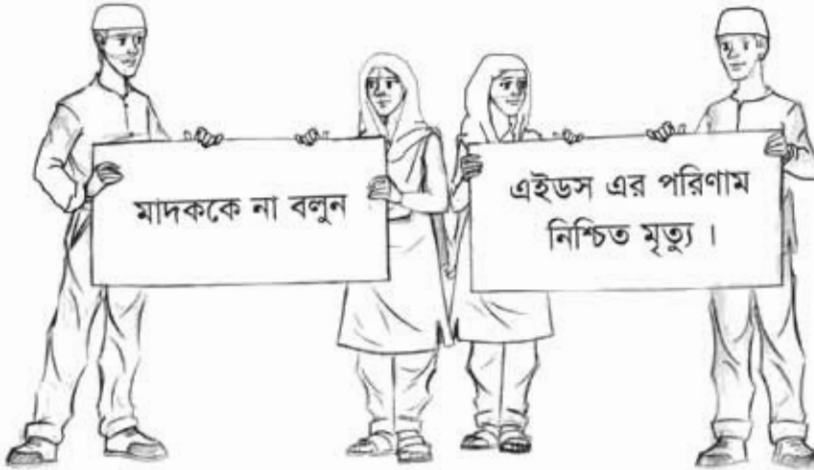 মাদককে না বলুন
এইডস এর পরিণাম
নিশ্চিত মৃত্যু ।